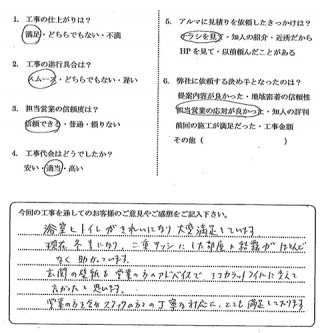 1. 工事の仕上がりは？
満足・どちらでもない・不満
2. 工事の進行具合は？
スムーズ・どちらでもない・遅い
3. 担当営業の信頼度は？
信頼できる・普通・頼りない
4. 工事代金はどうでしたか？
安い・適当・高い
5. アルマに見積りを依頼したきっかけは？
チラシを見て・知人の紹介・近所だから
HPを見て・以前頼んだことがある
6. 弊社に依頼する決め手となったのは？
提案内容が良かった・地域密着の信頼性
担当営業の応対が良かった・知人の評判
前回の施工が満足だった・工事金額
その他（　　　　　　　）
今回の工事を通してのお客様のご意見やご感想をご記入下さい。
浴室とトイレがきれいになり大変満足しています
現在冬になり、二重サッシにした部屋の結露がほとんど
なく助かっています。
玄関の壁紙も営業の方のアドバイスでエコカラットタイルに変えて
良かったと思います。
営業の方を含めスタッフの方の丁寧な対応に、とても満足しております